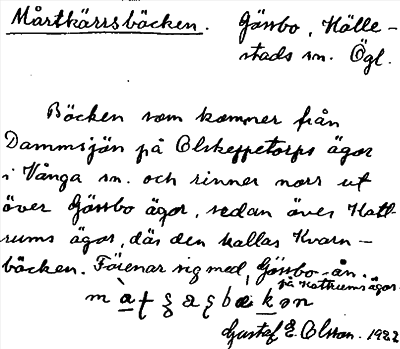 Mårtkärrsbäcken. Gössbo, Hälle-
stads sn. Ögl.
Bäcken som kommer från
Dammsjön på Olskeppetorps ägor
i Vånga sn. och rinner norr ut
över Gössbo ägor, sedan över Katt-
rums ägor, där den kallas Kvarn-
bäcken. Förenar sig med Gössbo-ån.
på Kattrums ägor.
Gustaf E. Olsson. 1922